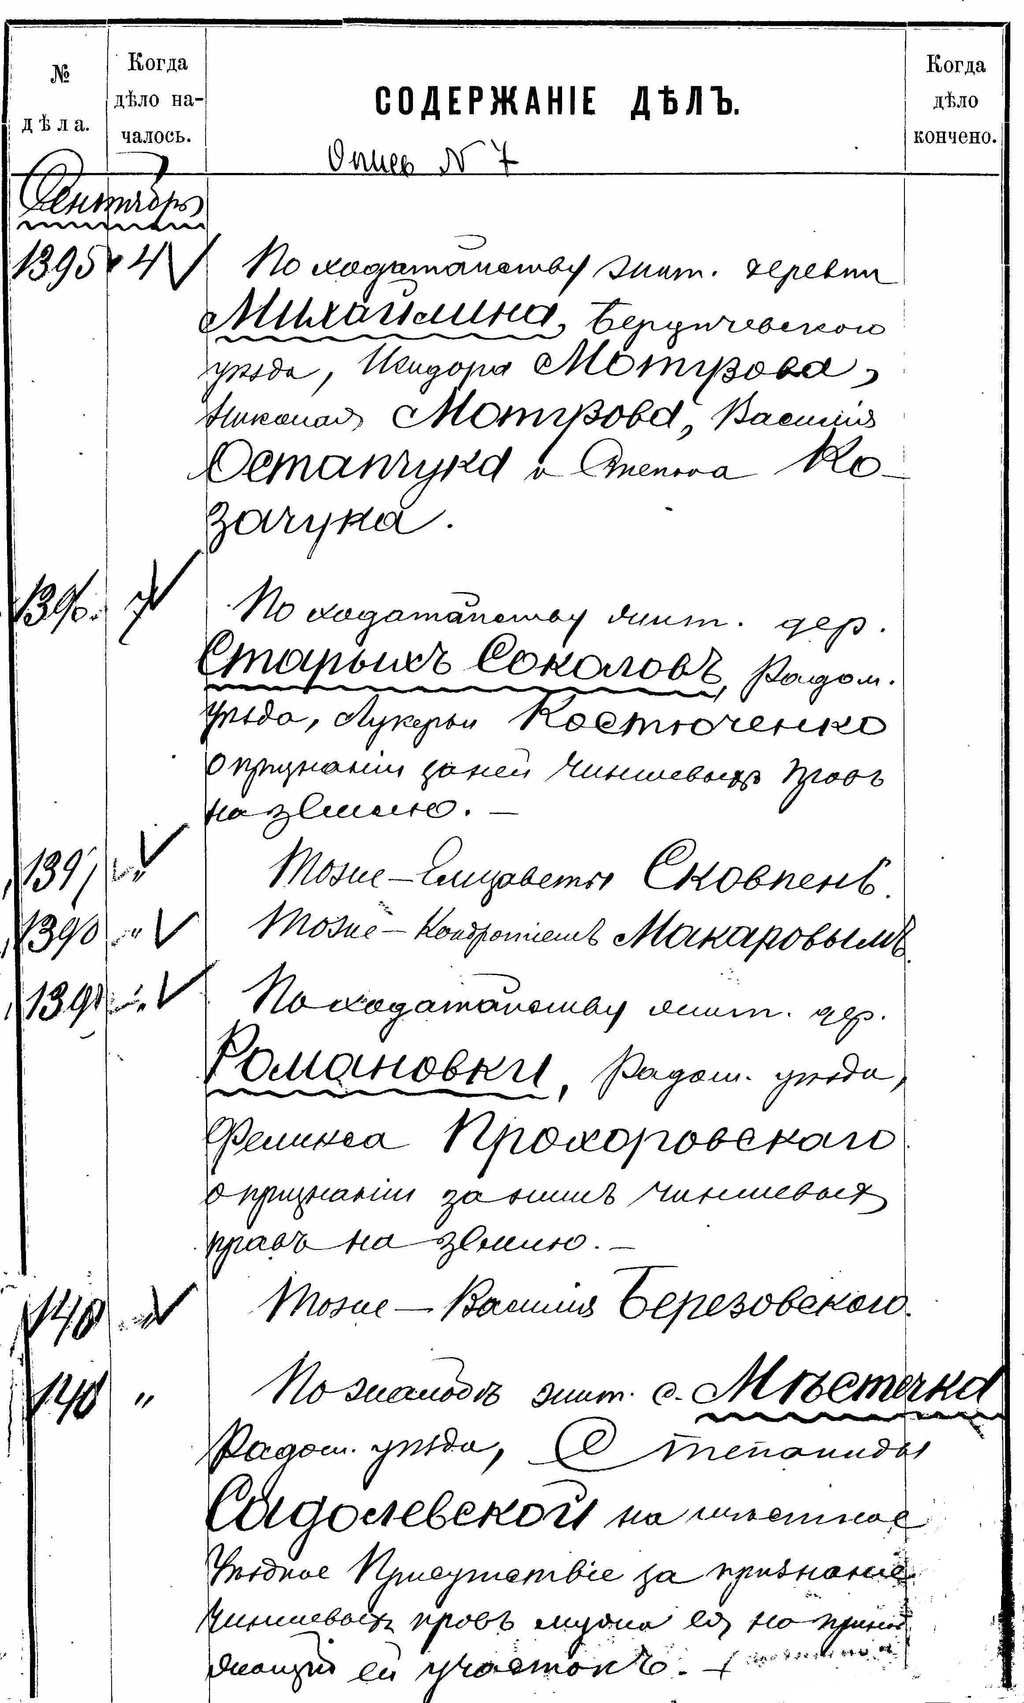 № дѣла.
Когда дѣло началось.
СОДЕРЖАНІЕ ДѢЛЪ.
Когда дѣло кончено.
Опись N 7
Сентябрь
1395 4 По ходатайству жит. деревни
Михайлина, Бердичевского
уѣзда, Исидора Мотрова,
Николая Мотрова, Василія
Остапчука и Степана Ко-
зачука.
1396. 7 По ходатайству жит. дер.
Старыхъ Соколовъ, Радом.
уѣзда, Лукерьи Костюченко
о признаніи за ней чиншевыхъ правъ
на землю. —
1397 „ Тоже — Елизаветы Сковпень.
1398 „ Тоже — Кондратіемъ Макаровымъ.
1399 „ По ходатайству жит. дер.
Романовки, Радом. уѣзда,
Феликса Прохоровскаго
о признаніи за нимъ чиншевыхъ
правъ на землю. —
140 „ Тоже — Василія Березовского.
140 „ По жалобѣ жит. с. Мѣстечка
Радом. уѣзда, Степаниды
Садолевской на мѣстное
Уѣздное Присутствіе за признаніе
чиншевыхъ правъ мужа ея на
ей участокъ. —